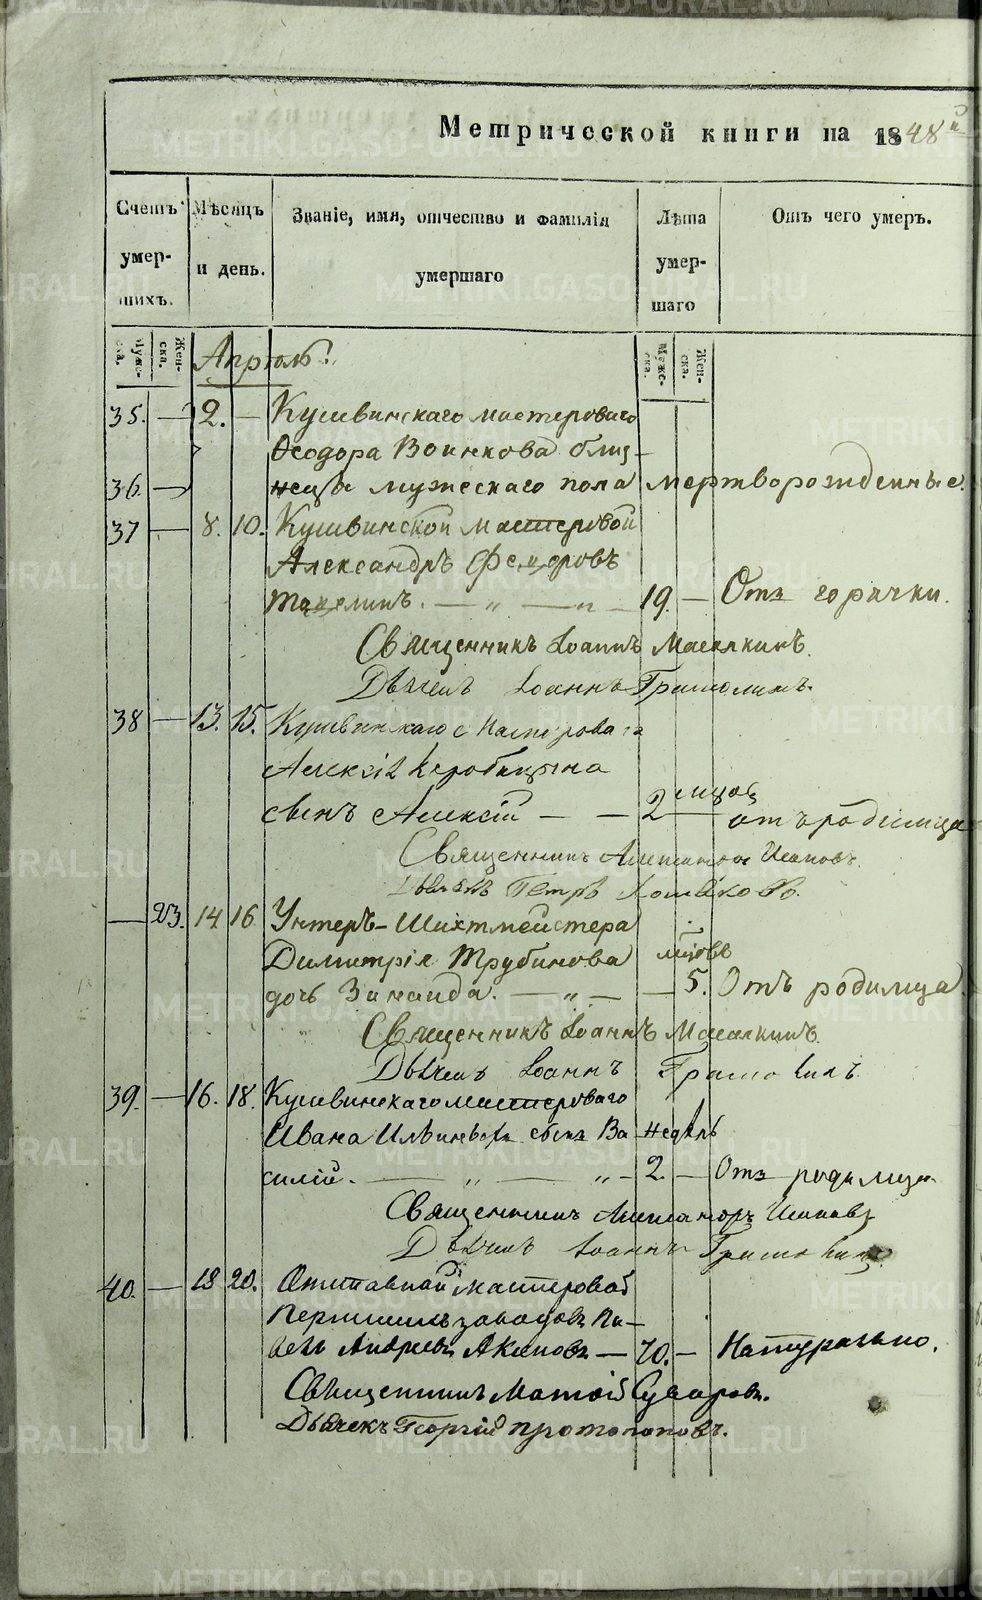 Метрической книги на 1848й
Счетъ умер- шихъ.
Мѣсяцъ и день.
Званіе, имя, отчество и фамилія умершаго
Лѣта умер- шаго
Отъ чего умеръ.
Муже- ска.
Жен- ска.
Муже- ска.
Жен- ска.
Апрѣль.
35. — 2. — Кушвинскаго мастероваго
Ѳеодора Воинкова близ-
36. — нецы мужескаго пола мертворожденные.
37 — 8. 10. Кушвинской мастеровой
Александръ Федоровъ
19. — Отъ горячки.
Священникъ Іоаннъ
Дьячекъ Іоаннъ
38 — 13. 15. Кушвинскаго мастероваго
Алексія Коробицына
сынъ Алексій — — 2 отъ родимца
Священникъ Александръ
Дьячекъ Петръ Хомяковъ.
— 23. 14 16 Унтеръ-Шихтмейстера
Димитрія Трубинова мѣсяцовъ
дочь Зинаида. — „ — — 5. Отъ родимца.
Священникъ Іоаннъ
Дьячекъ Іоаннъ
39. — 16. 18. Кушвинскаго мастероваго
Ивана сынъ Ва- недѣль
силій. — „ — „ — 2. — Отъ родимца.
Священникъ Александръ
Дьячекъ Іоаннъ
40. — 18 20. Отставной мастеровой
заводовъ Па-
велъ Андреевъ Акиловъ — 70. — Натурально.
Священникъ Матѳій Суворовъ.
Дьячекъ Георгій Протопоповъ.
METRIKI.GASO-URAL.RU